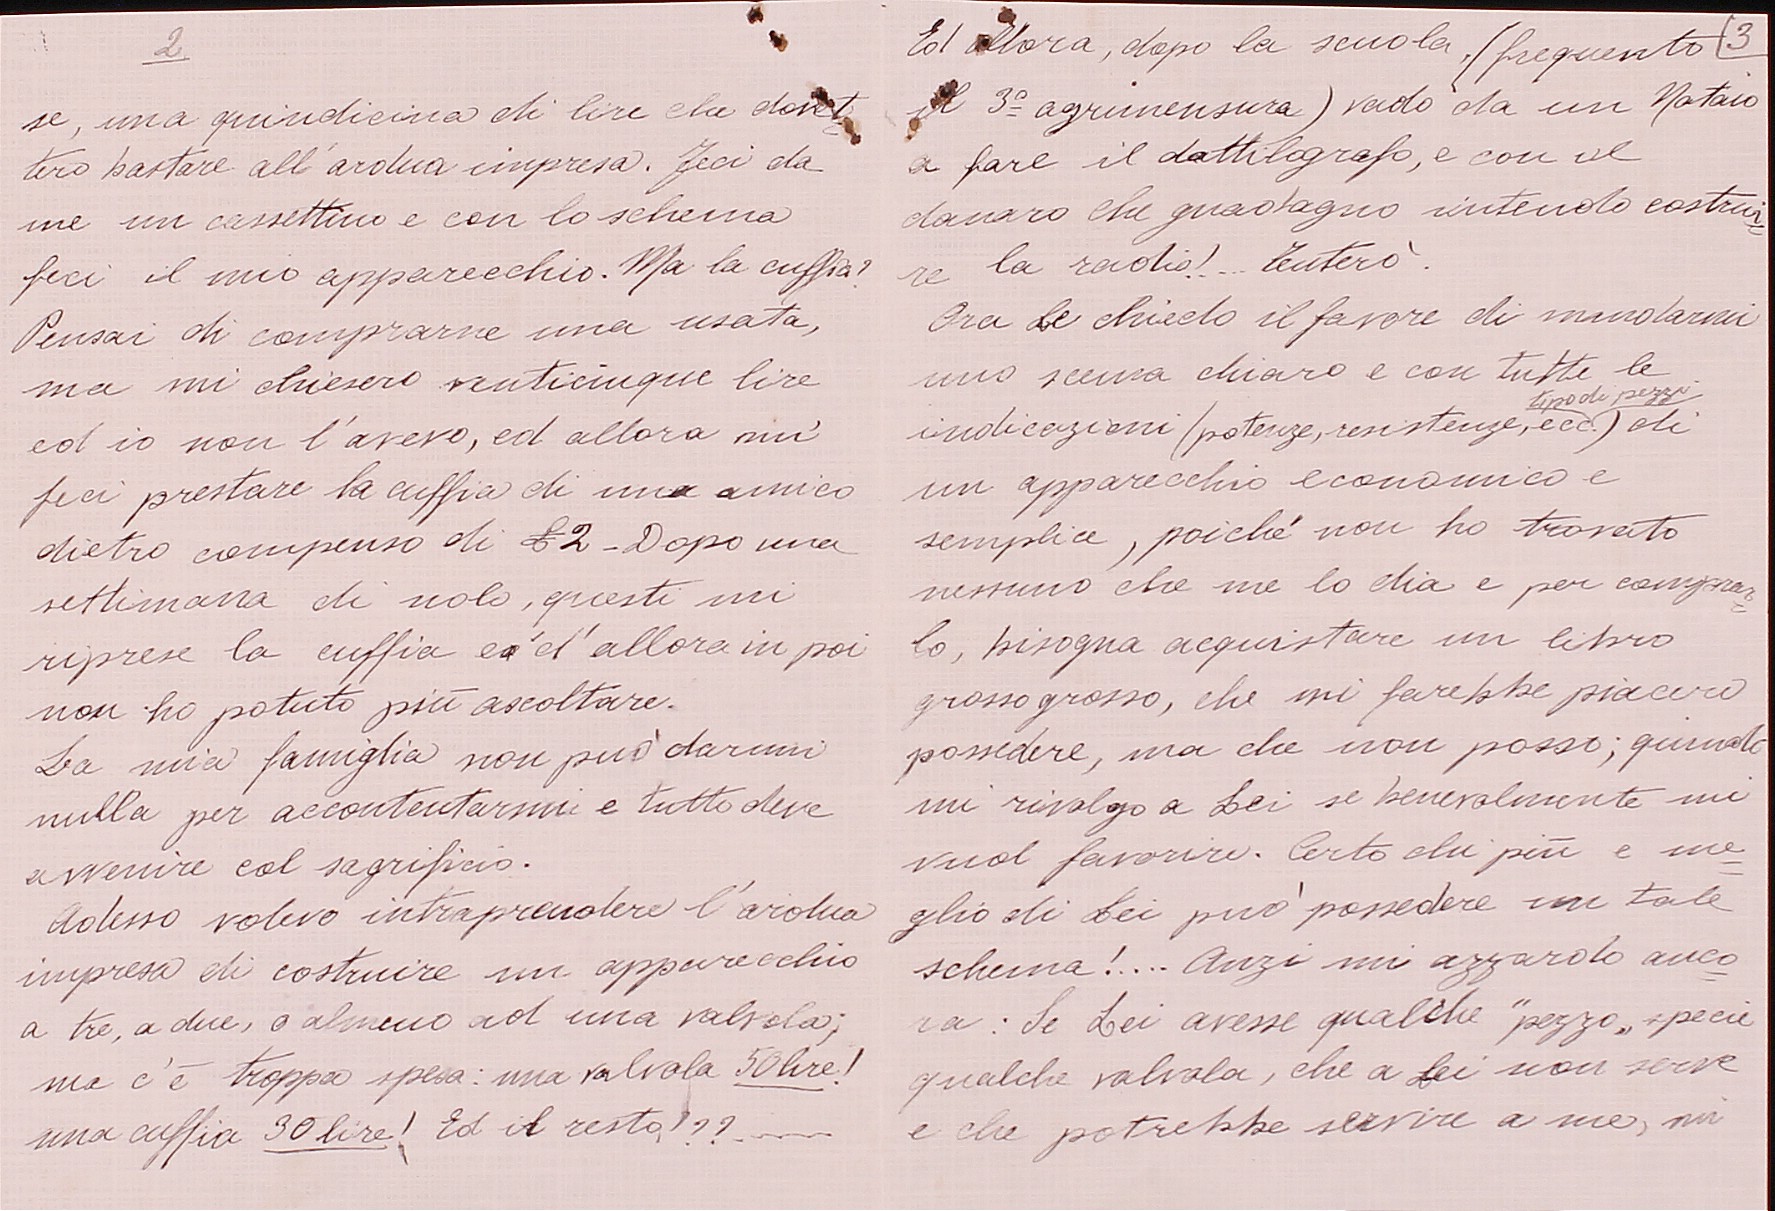 2
se, una quindicina di lire che dovet-
tero bastare all'ardua impresa. Feci da
me un cassettino e con lo schema
feci il mio apparecchio. Ma la cuffia?
Pensai di comprarne una usata,
ma mi chiesero venticinque lire
ed io non l'avevo, ed allora mi
feci prestare la cuffia di una amico
dietro compenso di £2 - Dopo una
settimana di nolo, questi mi
riprese la cuffia e d'allora in poi
non ho potuto più ascoltare.
La mia famiglia non può darmi
nulla per accontentarmi e tutto deve
avvenire col sagrificio.
Adesso volevo intraprendere l'ardua
impresa di costruire un apparecchio
a tre, a due, o almeno ad una valvola;
ma c'è troppa spesa: una valvola 50 lire!
una cuffia 30 lire! Ed il resto!??
3
Ed allora, dopo la scuola, (frequento
il 3º agrimensura) vado da un Notaio
a fare il dattilografo, e con il
danaro che guadagno intendo costrui=
re la radio!... Tenterò.
Ora Le chiedo il favore di mandarmi
uno scema chiaro e con tutte le
tipo di pezzi
indicazioni (potenze, resistenze, ecc.) di
un apparecchio economico e
semplice, poiché non ho trovato
nessuno che me lo dia e per comprar=
lo, bisogna acquistare un libro
grosso grosso, che mi farebbe piacere
possedere, ma che non posso; quindi
mi rivolgo a Lei se benevolmente mi
vuol favorire. Certo che più e me=
glio di Lei può possedere un tale
schema!.... Anzi mi azzardo anco=
ra: Se Lei avesse qualche "pezzo„ specie
qualche valvola, che a Lei non serve
e che potrebbe servire a me, mi